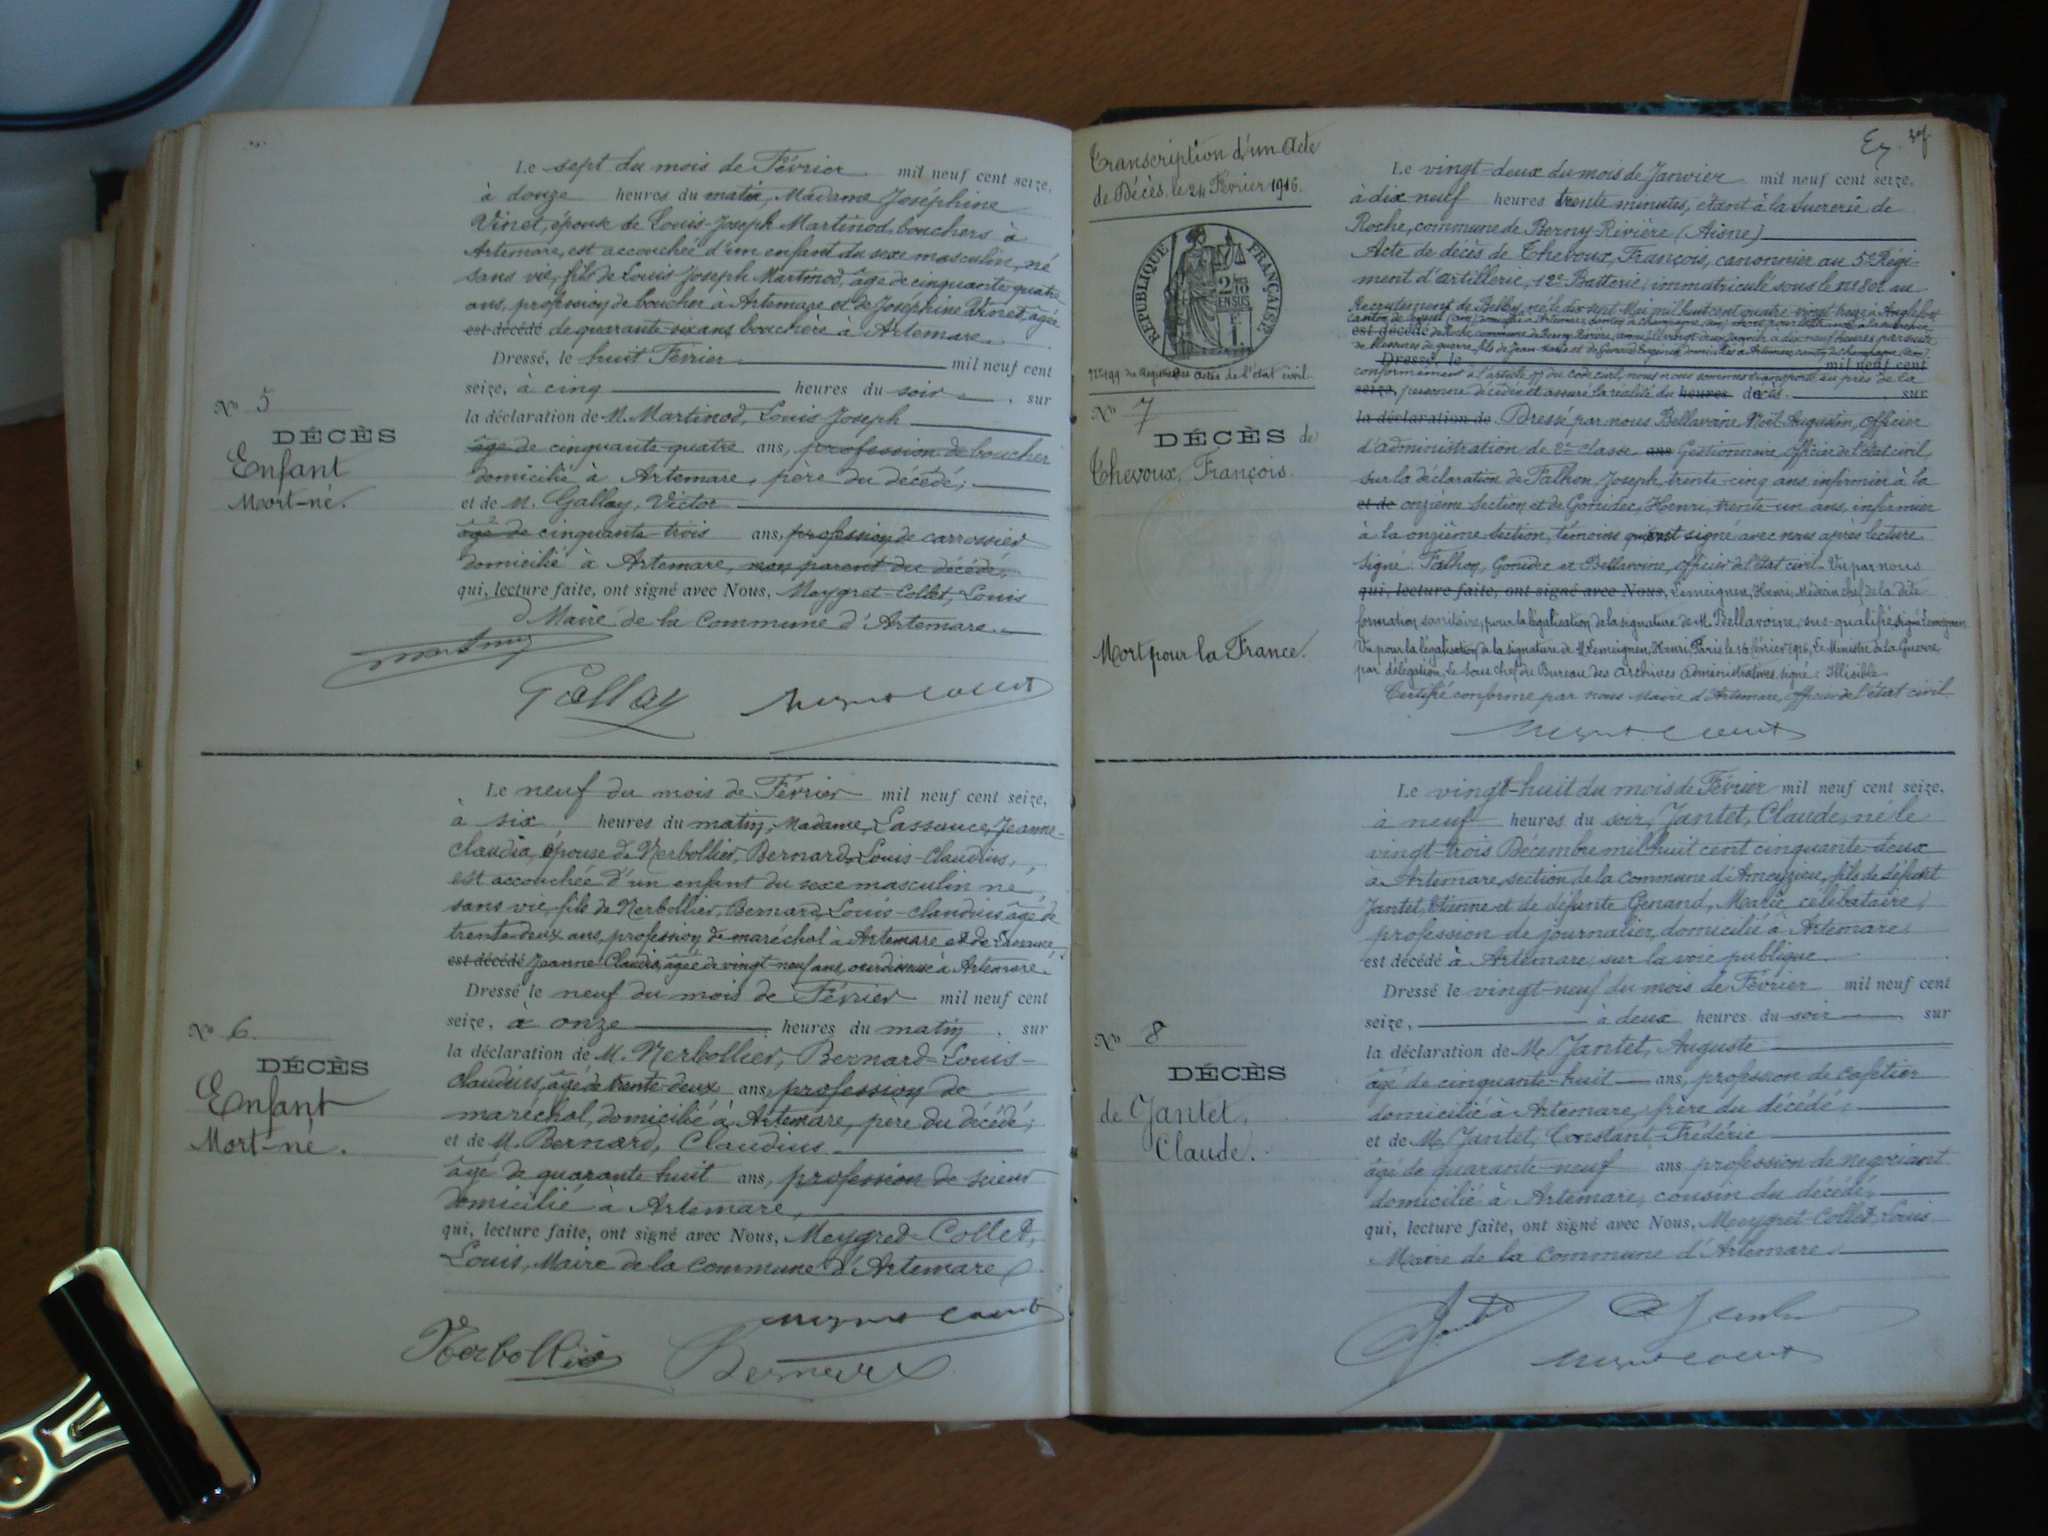 Le sept du mois de Février mil neuf cent seize,
à douze heures du matin, Madame Joséphine
Vinet, épouse de Louis-Joseph Martinod bouchers à
Artemare, est accouchée d'un enfant du sexe masculin, né
sans vie, fils de Louis Joseph Martinod, âgé de cinquante quatre
ans, profession de boucher à Artemare et de Joséphine Vinet, âgée
est décédé de quarante-six ans bouchère à Artemare.
Dressé, le huit Février mil neuf cent
seize, à cinq heures du soir, sur
la déclaration de M. Martinod, Louis Joseph
âgé de cinquante quatre ans, profession de boucher
domicilié à Artemare, père du décédé;
et de M. Gallay, Victor
âgé de cinquante trois ans, profession de carrossier
domicilié à Artemare, non parent du décédé,
qui, lecture faite, ont signé avec Nous, Meygret-Collet, Louis
Maire de la Commune d'Artemare.
No 5
DÉCÈS
Enfant
Mort-né.
Gallay
Le neuf du mois de Février mil neuf cent seize,
à six heures du matin, Madame, Lassauce, Jeanne-
Claudia, épouse de Nerbollier, Bernard-Louis-Claudius,
est accouchée d'un enfant du sexe masculin né
sans vie, fils de Nerbollier, Bernard, Louis-Claudius âgé de
trente-deux ans, profession de maréchal à Artemare et de Lassauce,
est décédé Jeanne-Claudia, âgée de vingt-neuf ans, ourdisseuse à Artemare.
Dressé le neuf du mois de Février mil neuf cent
seize, à onze heures du matin, sur
la déclaration de M. Nerbollier, Bernard-Louis-
Claudius, âgé de trente-deux ans, profession de
maréchal, domicilié à Artemare, père du décédé;
et de M. Bernard, Claudius
âgé de quarante huit ans, profession de scieur
domicilié à Artemare,
qui, lecture faite, ont signé avec Nous, Meygret-Collet,
Louis, Maire de la Commune d'Artemare
No 6
DÉCÈS
Enfant
Mort-né.
Nerbollier
Bernard
Transcription d'un Acte
de Décès le 24 Février 1916.
RÉPUBLIQUE FRANÇAISE
2/10 EN SUS
No 199 du Registre des actes de l'état civil.
No 7
DÉCÈS de
Thevoux, François.
Mort pour la France.
Le vingt-deux du mois de Janvier mil neuf cent seize,
à dix-neuf heures trente minutes, étant à la Sucrerie de
Roche, commune de Berny-Rivière (Aisne)
Acte de décès de Thevoux, François, canonnier au 5e Régi-
ment d'artillerie, 12e Batterie, immatriculé sous le no 801 au
Recrutement de Belley, né le dix-sept Mai mil huit cent quatre-vingt treize à Anglefort
est décédé
de blessures de guerre, fils de Jean
Dressé, le mil neuf cent
conformément à l'article 77 du code civil, nous nous sommes transporté auprès de la
seize, personne décédée et assuré la réalité du heures décès. sur
la déclaration de Dressé par nous Bellavoine Noël Augustin, officier
d'administration de 2e classe ans Gestionnaire, officier de l'état civil,
sur la déclaration de Falhon Joseph, trente-cinq ans, infirmier à la
et de onzième section et de Gonidec, Henri, trente-un ans, infirmier
à la onzième section, témoins qui ont signé avec nous après lecture
Signé: Falhon, Gonidec et Bellavoine, officier de l'état civil. Vu par nous
qui, lecture faite, ont signé avec Nous, Lemeignen, Henri, Médecin chef de la dite
formation sanitaire, pour la légalisation de la signature de M. Bellavoine, sus-qualifié signé: Lemeignen
Vu pour la légalisation de la signature de M. Lemeignen, Henri, Paris le 16 février 1916, Le Ministre de la Guerre,
par délégation, Le Sous chef du Bureau des Archives Administratives signé: Illisible
Certifié conforme par nous Maire d'Artemare, officier de l'état civil
Le vingt-huit du mois de Février mil neuf cent seize,
à neuf heures du soir, Jantet, Claude, né le
vingt-trois Décembre mil huit cent cinquante-deux
à Artemare, section de la commune d'Ameyzieu, fils de défunt
Jantet, Etienne et de défunte Genand, Marie, célibataire,
profession de journalier, domicilié à Artemare,
est décédé à Artemare, sur la voie publique.
Dressé le vingt-neuf du mois de Février mil neuf cent
seize, à deux heures du soir sur
la déclaration de M. Jantet, Auguste
âgé de cinquante-huit ans, profession de cafetier
domicilié à Artemare, frère du décédé;
et de M. Jantet, Constant-Frédéric
âgé de quarante-neuf ans profession de négociant
domicilié à Artemare, cousin du décédé,
qui, lecture faite, ont signé avec Nous, Meygret-Collet, Louis
Maire de la commune d'Artemare.
No 8
DÉCÈS
de Jantet,
Claude.